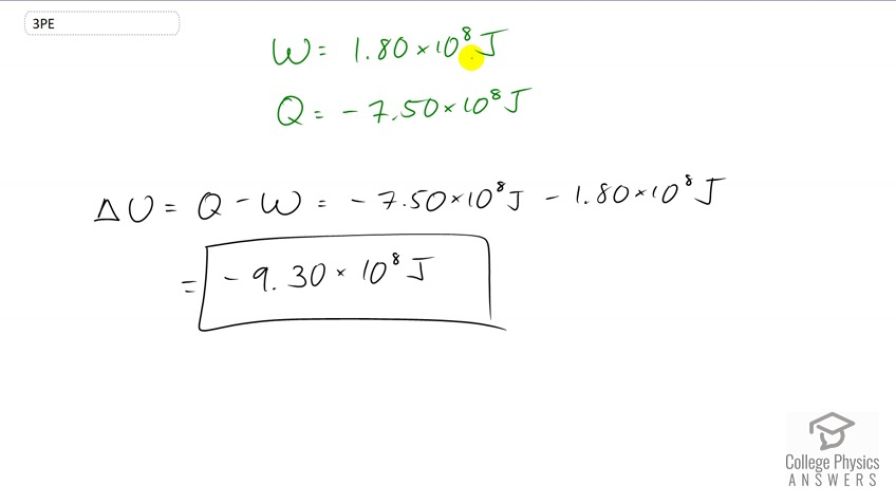 3PE
W = 1.80 × 10⁸ J
Q = - 7.50 × 10⁸ J
ΔU = Q - W = - 7.50 × 10⁸ J - 1.80 × 10⁸ J
= - 9.30 × 10⁸ J
College Physics
ANSWERS